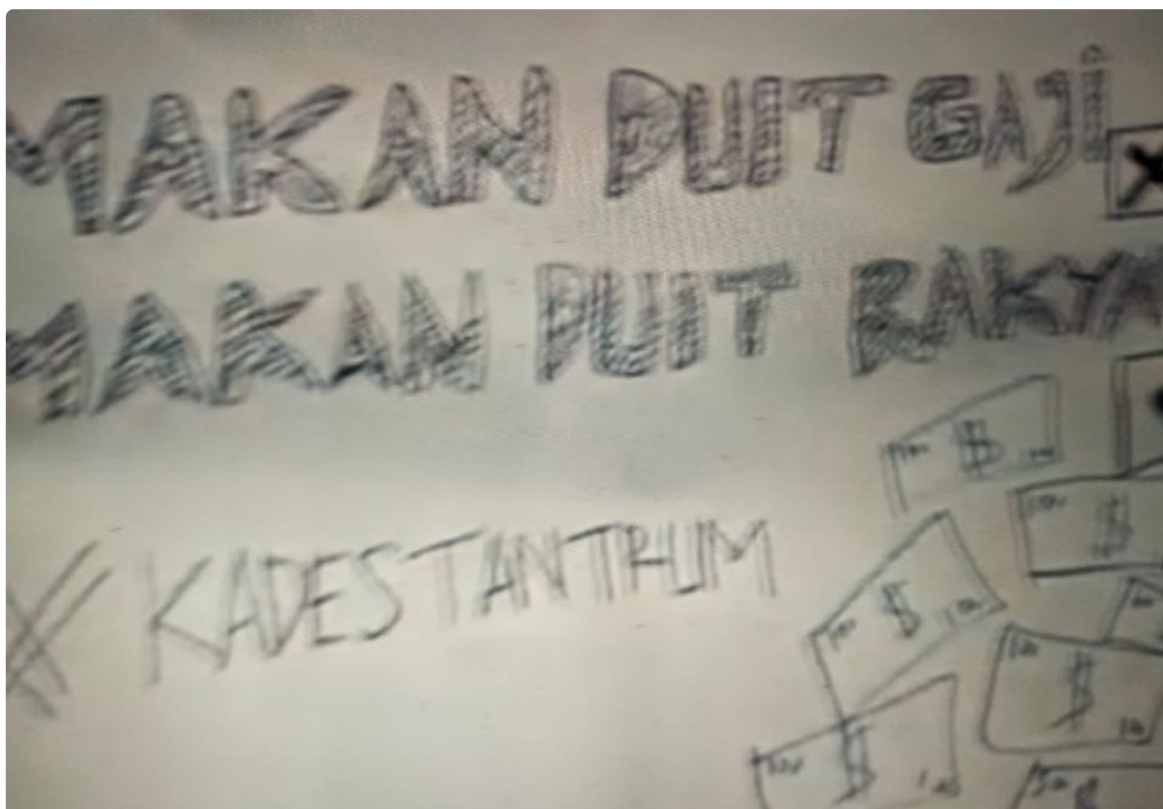 MAKAN DUIT GAJi
MAKAN DUIT RAKYA
# KADES TANTRUM
$
$
$
$
$